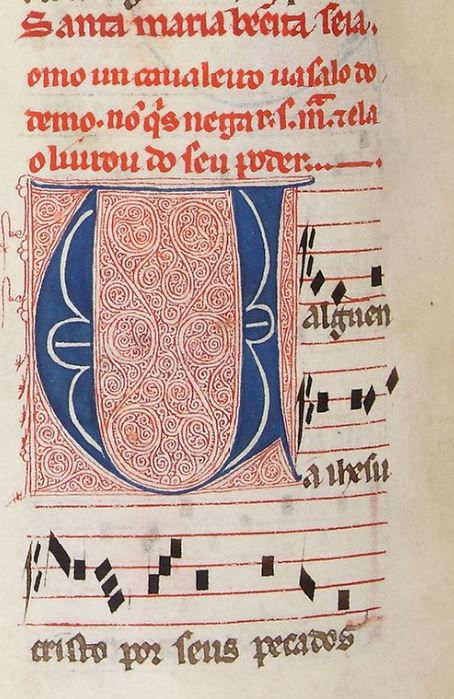 Santa maria bẽeita seia.
omo un caualeiro uasalo do
demo.nõ q̃s negar.s.m̃.⁊ ela
o liurou do seu poder.
U alguen
a ihesu
cristo por seus pecados